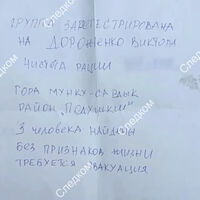 ГРУППА ЗАРЕГЕСТРИРОВАНА
НА ДОРОНЕНКО ВИКТОРА
ЧИСТОТА РАЦИИ
ГОРА МУНКУ-САРДЫК
РАЙОН "ПОДУШКИ"
3 ЧЕЛОВЕКА НАЙДЕНЫ
БЕЗ ПРИЗНАКОВ ЖИЗНИ
ТРЕБУЕТСЯ ЭВАКУАЦИЯ
Следком
Следком
Следком
Следком
Следком